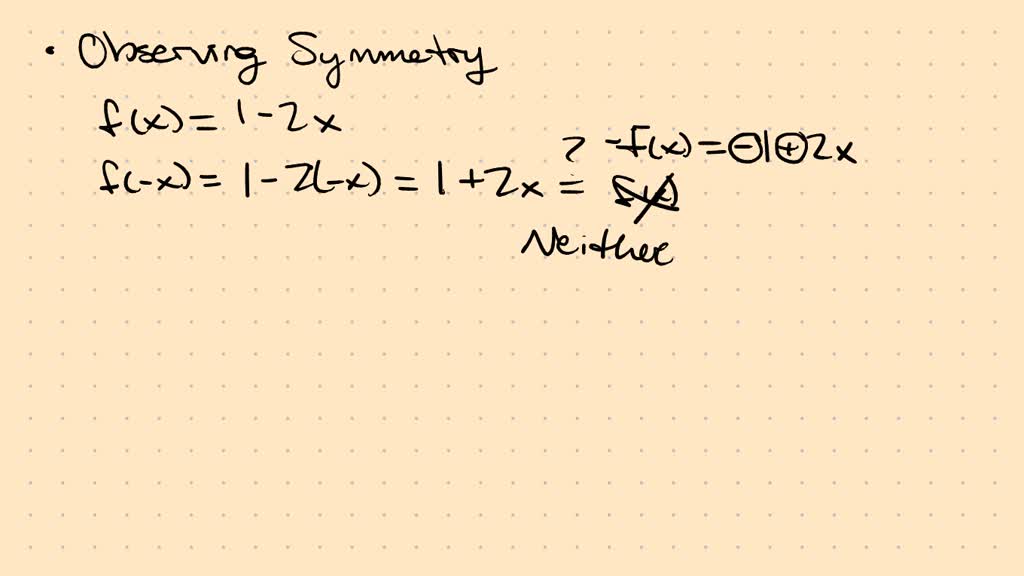 • Observing Symmetry
f(x) = 1 - 2x
? -f(x) = -1 + 2x
f(-x) = 1 - 2(-x) = 1 + 2x = f(x)
Neither